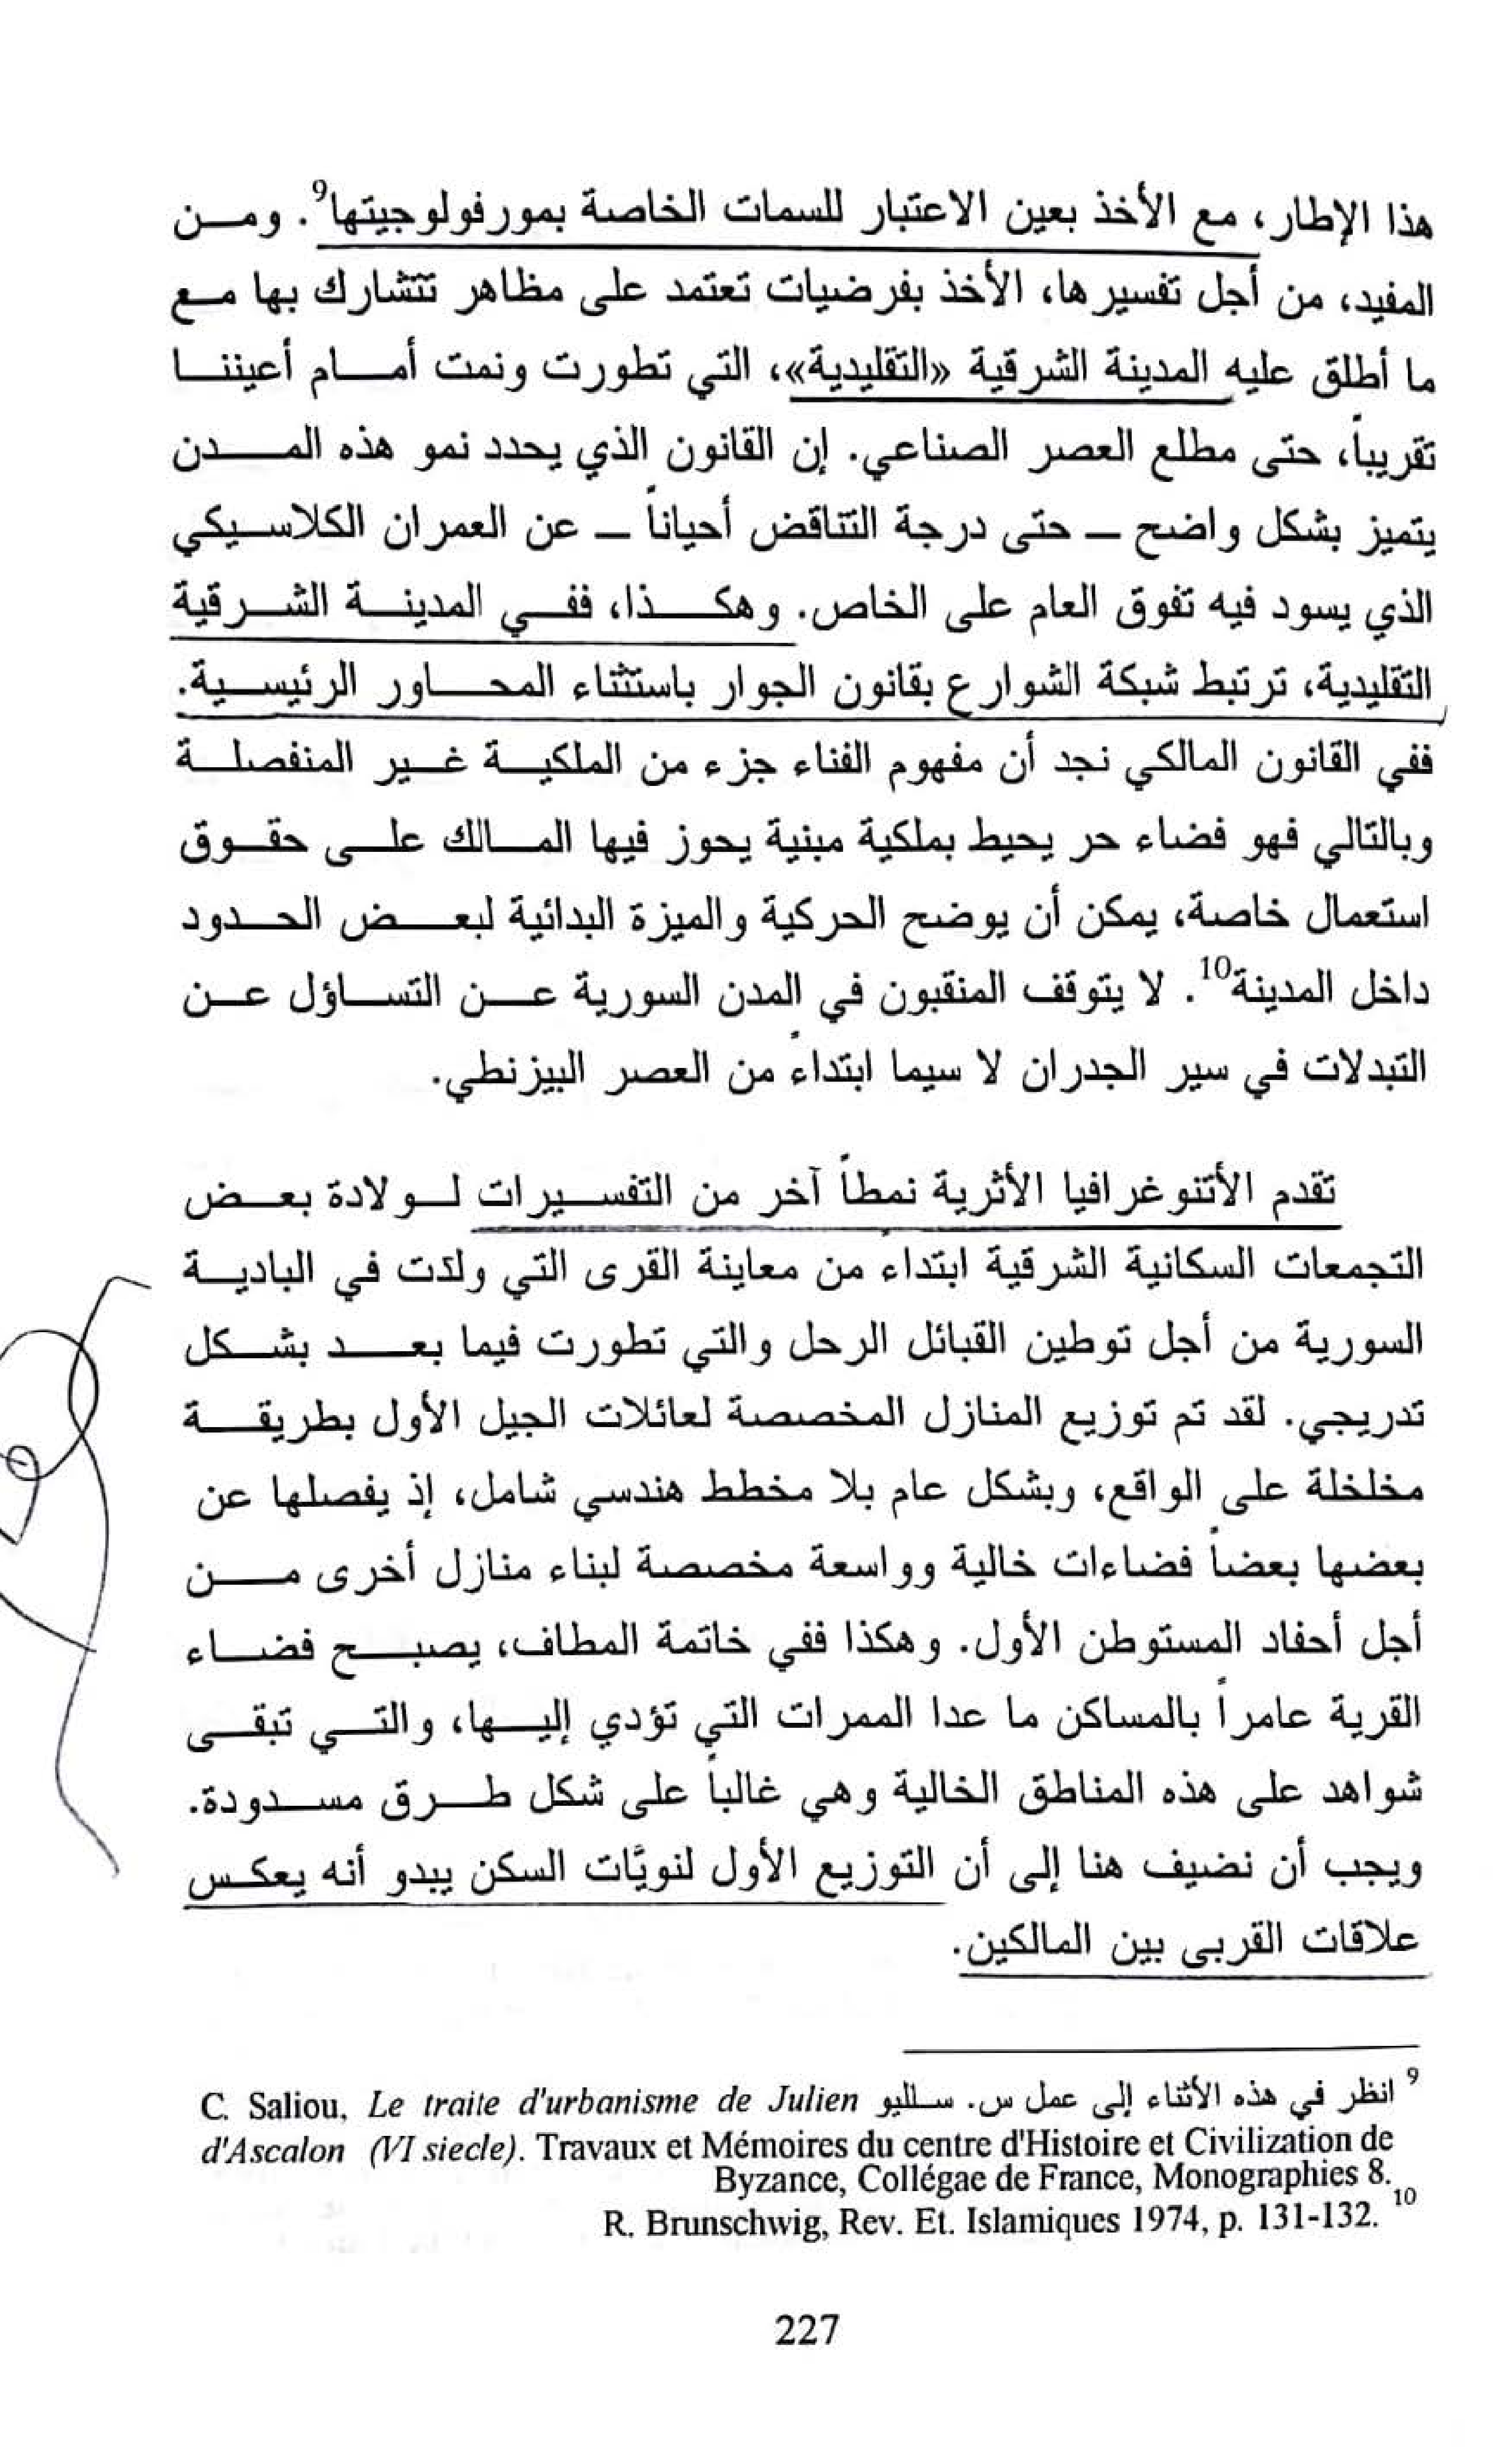 هذا الإطار، مع الأخذ بعين الاعتبار للسمات الخاصة بمورفولوجيتها9. ومن
المفيد، من أجل تفسيرها، الأخذ بفرضيات تعتمد على مظاهر تتشارك بها مع
ما أطلق عليه المدينة الشرقية «التقليدية»، التي تطورت ونمت أمام أعيننا
تقريباً، حتى مطلع العصر الصناعي. إن القانون الذي يحدد نمو هذه المدن
يتميز بشكل واضح – حتى درجة التناقض أحياناً – عن العمران الكلاسيكي
الذي يسود فيه تفوق العام على الخاص. وهكذا، ففي المدينة الشرقية
التقليدية، ترتبط شبكة الشوارع بقانون الجوار باستثناء المحاور الرئيسية.
ففي القانون المالكي نجد أن مفهوم الفناء جزء من الملكية غير المنفصلة
وبالتالي فهو فضاء حر يحيط بملكية مبنية يحوز فيها المالك على حقوق
استعمال خاصة، يمكن أن يوضح الحركية والميزة البدائية لبعض الحدود
داخل المدينة10. لا يتوقف المنقبون في المدن السورية عن التساؤل عن
التبدلات في سير الجدران لا سيما ابتداءً من العصر البيزنطي.
تقدم الأتنوغرافيا الأثرية نمطاً آخر من التفسيرات لولادة بعض
التجمعات السكانية الشرقية ابتداءً من معاينة القرى التي ولدَت في البادية
السورية من أجل توطين القبائل الرحل والتي تطورت فيما بعد بشكل
تدريجي. لقد تم توزيع المنازل المخصصة لعائلات الجيل الأول بطريقة
مخلخلة على الواقع، وبشكل عام بلا مخطط هندسي شامل، إذ يفصلها عن
بعضها بعضاً فضاءات خالية وواسعة مخصصة لبناء منازل أخرى من
أجل أحفاد المستوطن الأول. وهكذا ففي خاتمة المطاف، يصبح فضاء
القرية عامراً بالمساكن ما عدا الممرات التي تؤدي إليها، والتي تبقى
شواهد على هذه المناطق الخالية وهي غالباً على شكل طرق مسدودة.
ويجب أن نضيف هنا إلى أن التوزيع الأول لنويَّات السكن يبدو أنه يعكس
علاقات القربى بين المالكين.
9 انظر في هذه الأثناء إلى عمل س. سالليو C. Saliou, Le traite d'urbanisme de Julien
d'Ascalon (VI siecle). Travaux et Mémoires du centre d'Histoire et Civilization de
Byzance, Collégae de France, Monographies 8.
R. Brunschwig, Rev. Et. Islamiques 1974, p. 131-132. 10
227